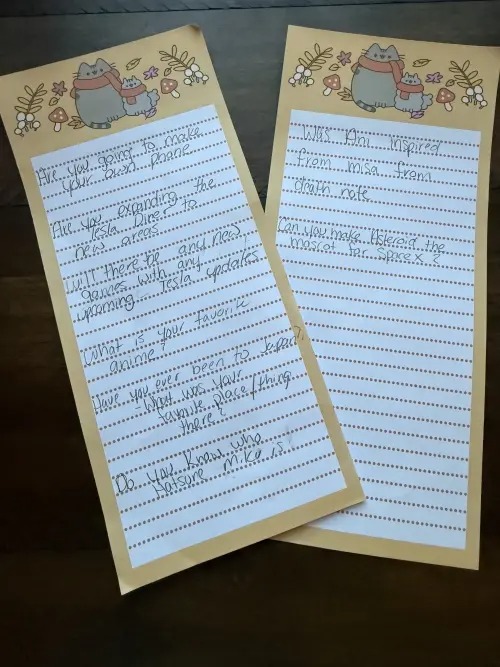 Are you going to make
your own phone
Are you expanding the
Tesla Diner to
new areas
Will there be any new
games with any
upcoming Tesla updates
What is your favorite
anime?
Have you ever been to Japan?
What was your
favorite place/thing
there?
Do you know who
Hatsune Miku is?
Was Ani inspired
from misa from
death note
Can you make Asteroid the
mascot for Space X?